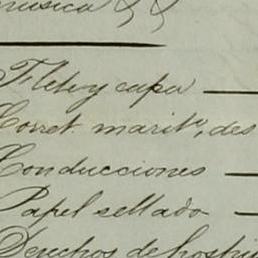 musica &
Flete y capa
Corret. maritª, des
Conducciones
Papel sellado
Derechos de hospi